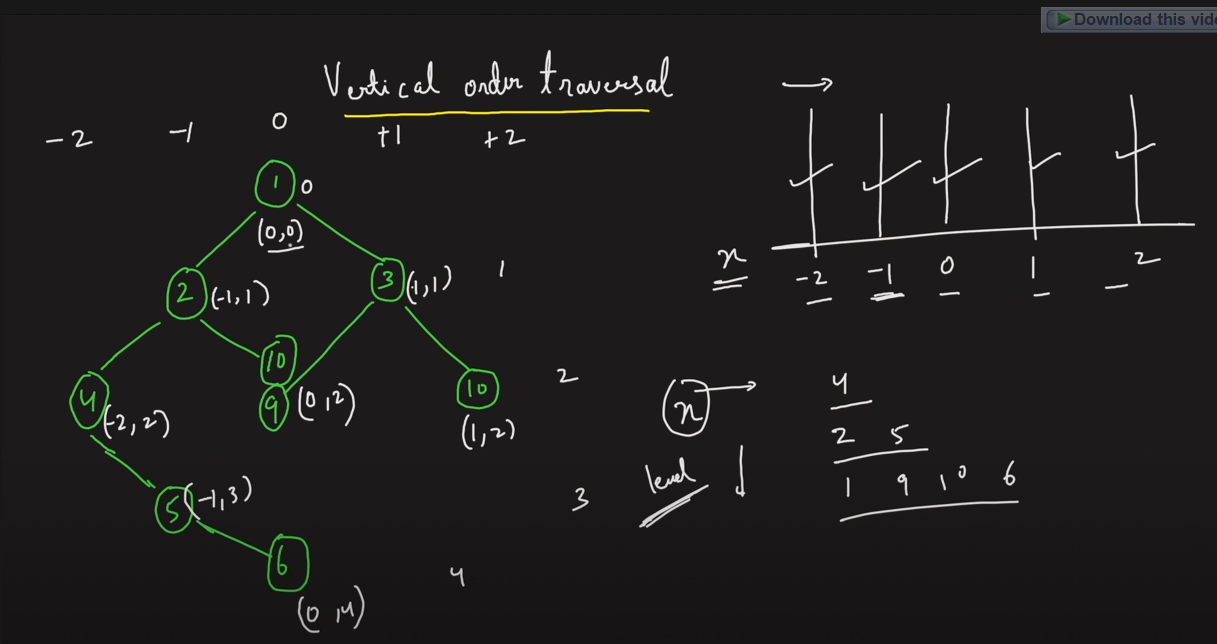 Download this vide
Vertical order traversal
-2 -1 0 +1 +2
1 0
(0,0)
2 (-1,1) 3 (1,1) 1
10
4 (-2,2) 9 (0,2) 10 2
(1,2)
5 (-1,3) 3
6 4
(0,4)
x -2 -1 0 1 2
x
level
4
2 5
1 9 10 6